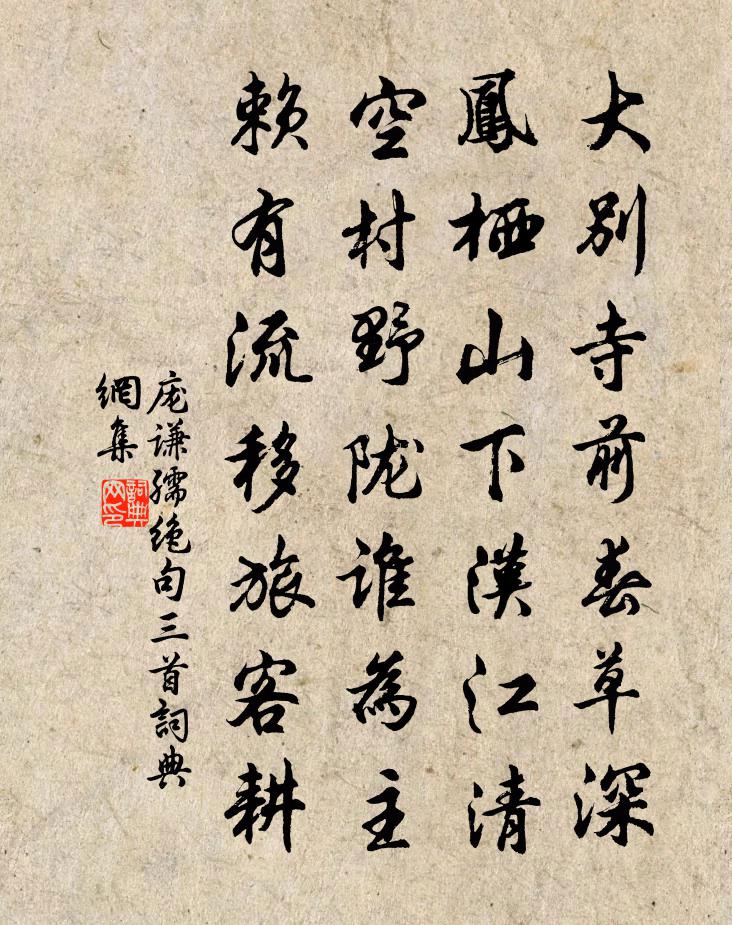 大别寺前春草深
鳳栖山下漢江清
空村野陇誰為主
賴有流移旅客耕
庞謙孺絶句三首詞典
網集
詞典
网印